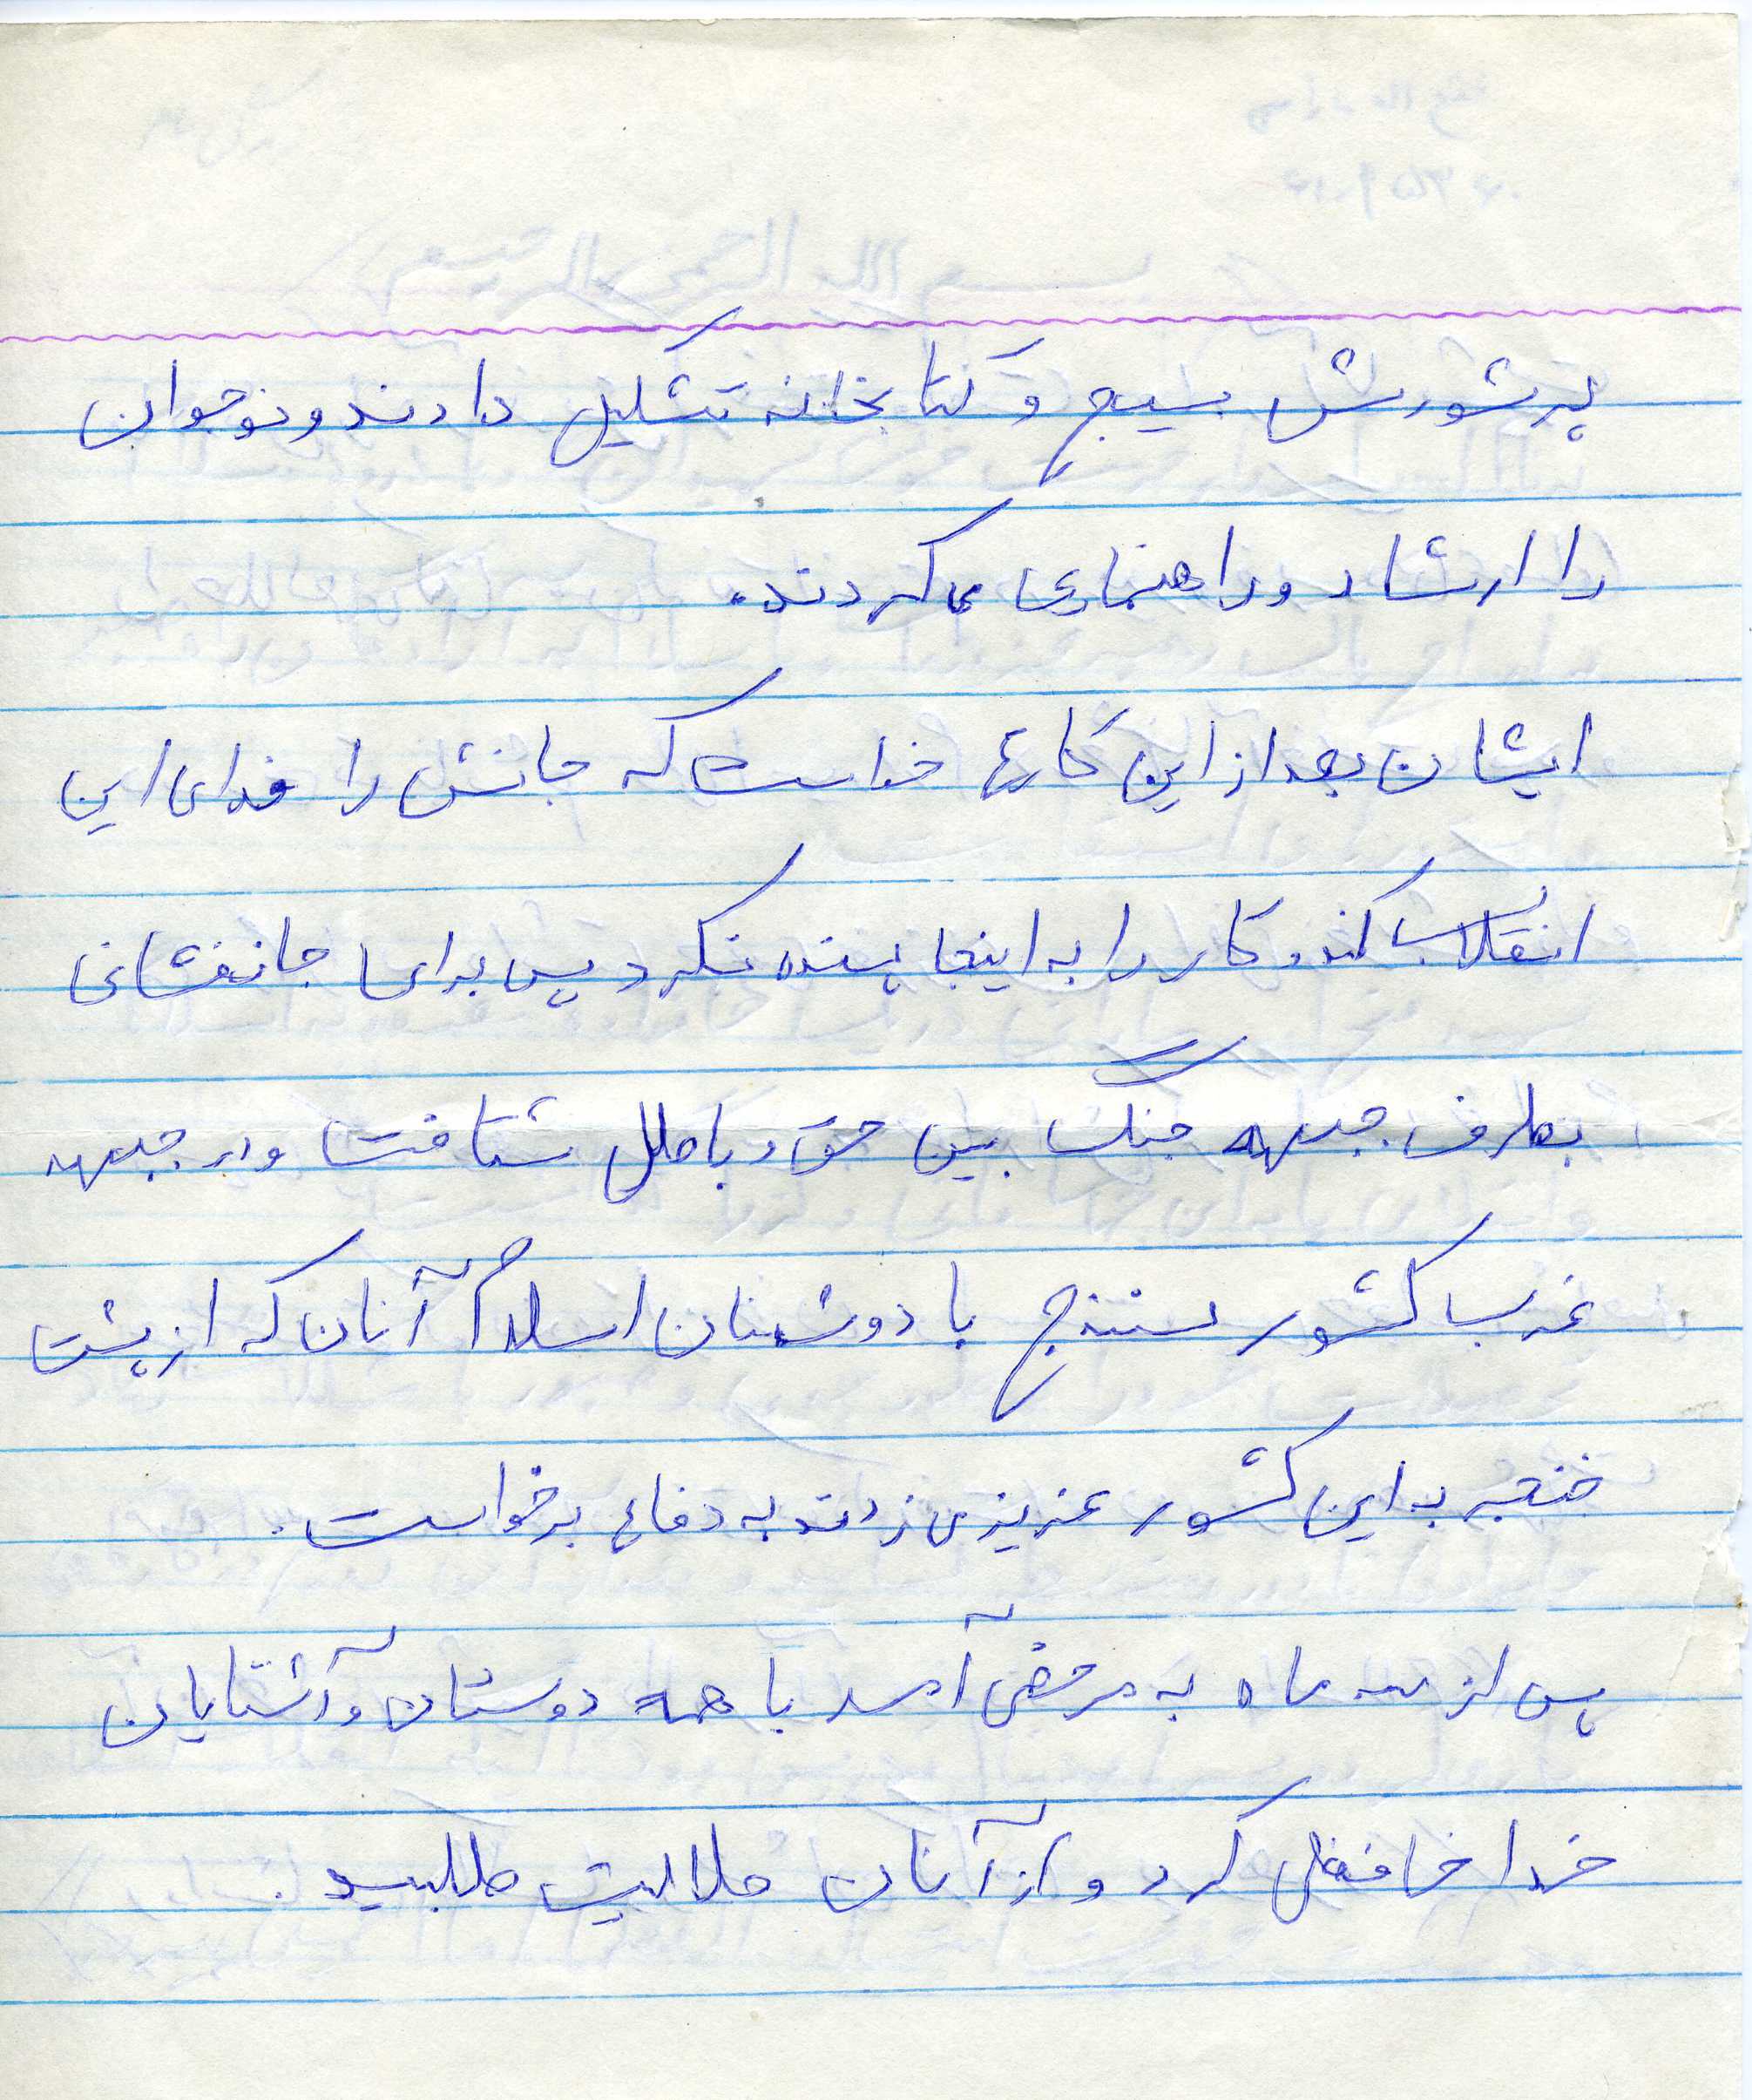 پرشورش بسیج و کتابخانه تشکیل دادند و نوجوان
را ارشاد و راهنمایی می کردند.
ایشان بعد از این کارها خواست که جانش را فدای این
انقلاب کند و کار را به اینجا بسنده نکرد پس برای جانفشانی
بطرف جبهه جنگ بین حق و باطل شتافت و در جبهه
غرب کشور سنندج با دوشمنان اسلام آنان که از پشت
خنجر به این کشور عزیز می زدند به دفاع برخواست.
پس از سه ماه به مرخصی آمد با همه دوستان و آشنایان
خداحافظی کرد و از آنان حلالیت طلبید.